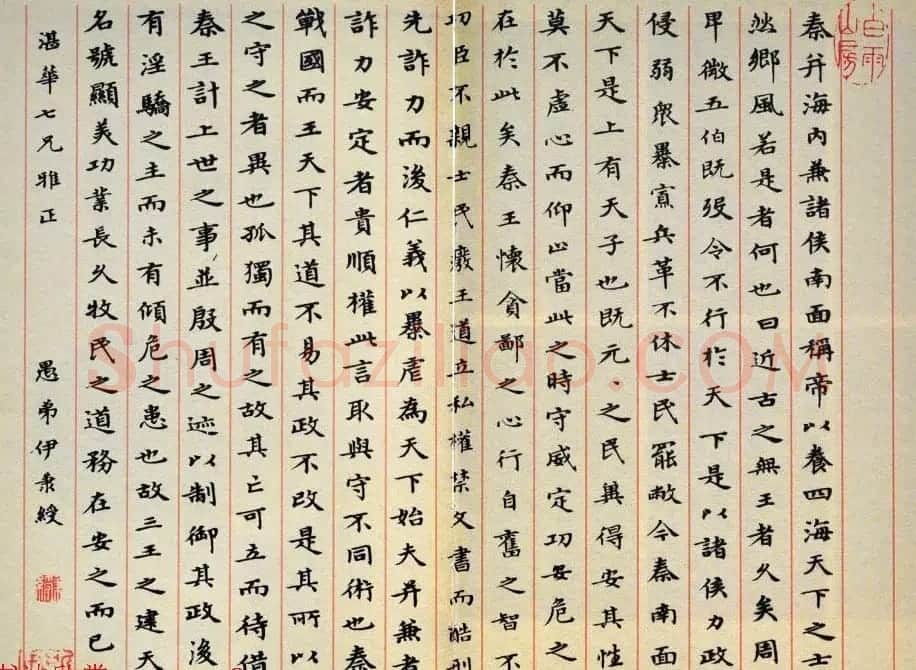 白雨山房
秦并海內兼諸侯南面稱帝以養四海天下之士
然鄉風若是者何也曰近古之無王者久矣周
卑微五伯既歿令不行於天下是以諸侯力政
侵弱眾暴寡兵革不休士民罷敝今秦南面
天下是上有天子也既元々之民冀得安其性
莫不虛心而仰上當此之時守威定功安危之
在於此矣秦王懷貪鄙之心行自奮之智不
功臣不親士民廢王道立私權禁文書而酷刑
先詐力而後仁義以暴虐為天下始夫并兼者
詐力安定者貴順權此言取與守不同術也秦
戰國而王天下其道不易其政不改是其所以
之守之者異也孤獨而有之故其亡可立而待借
秦王計上世之事並殷周之迹以制御其政後
有淫驕之主而未有傾危之患也故三王之建天
名號顯美功業長久牧民之道務在安之而已
湛華七兄雅正 愚弟伊秉綬
Shufaziliao.COM